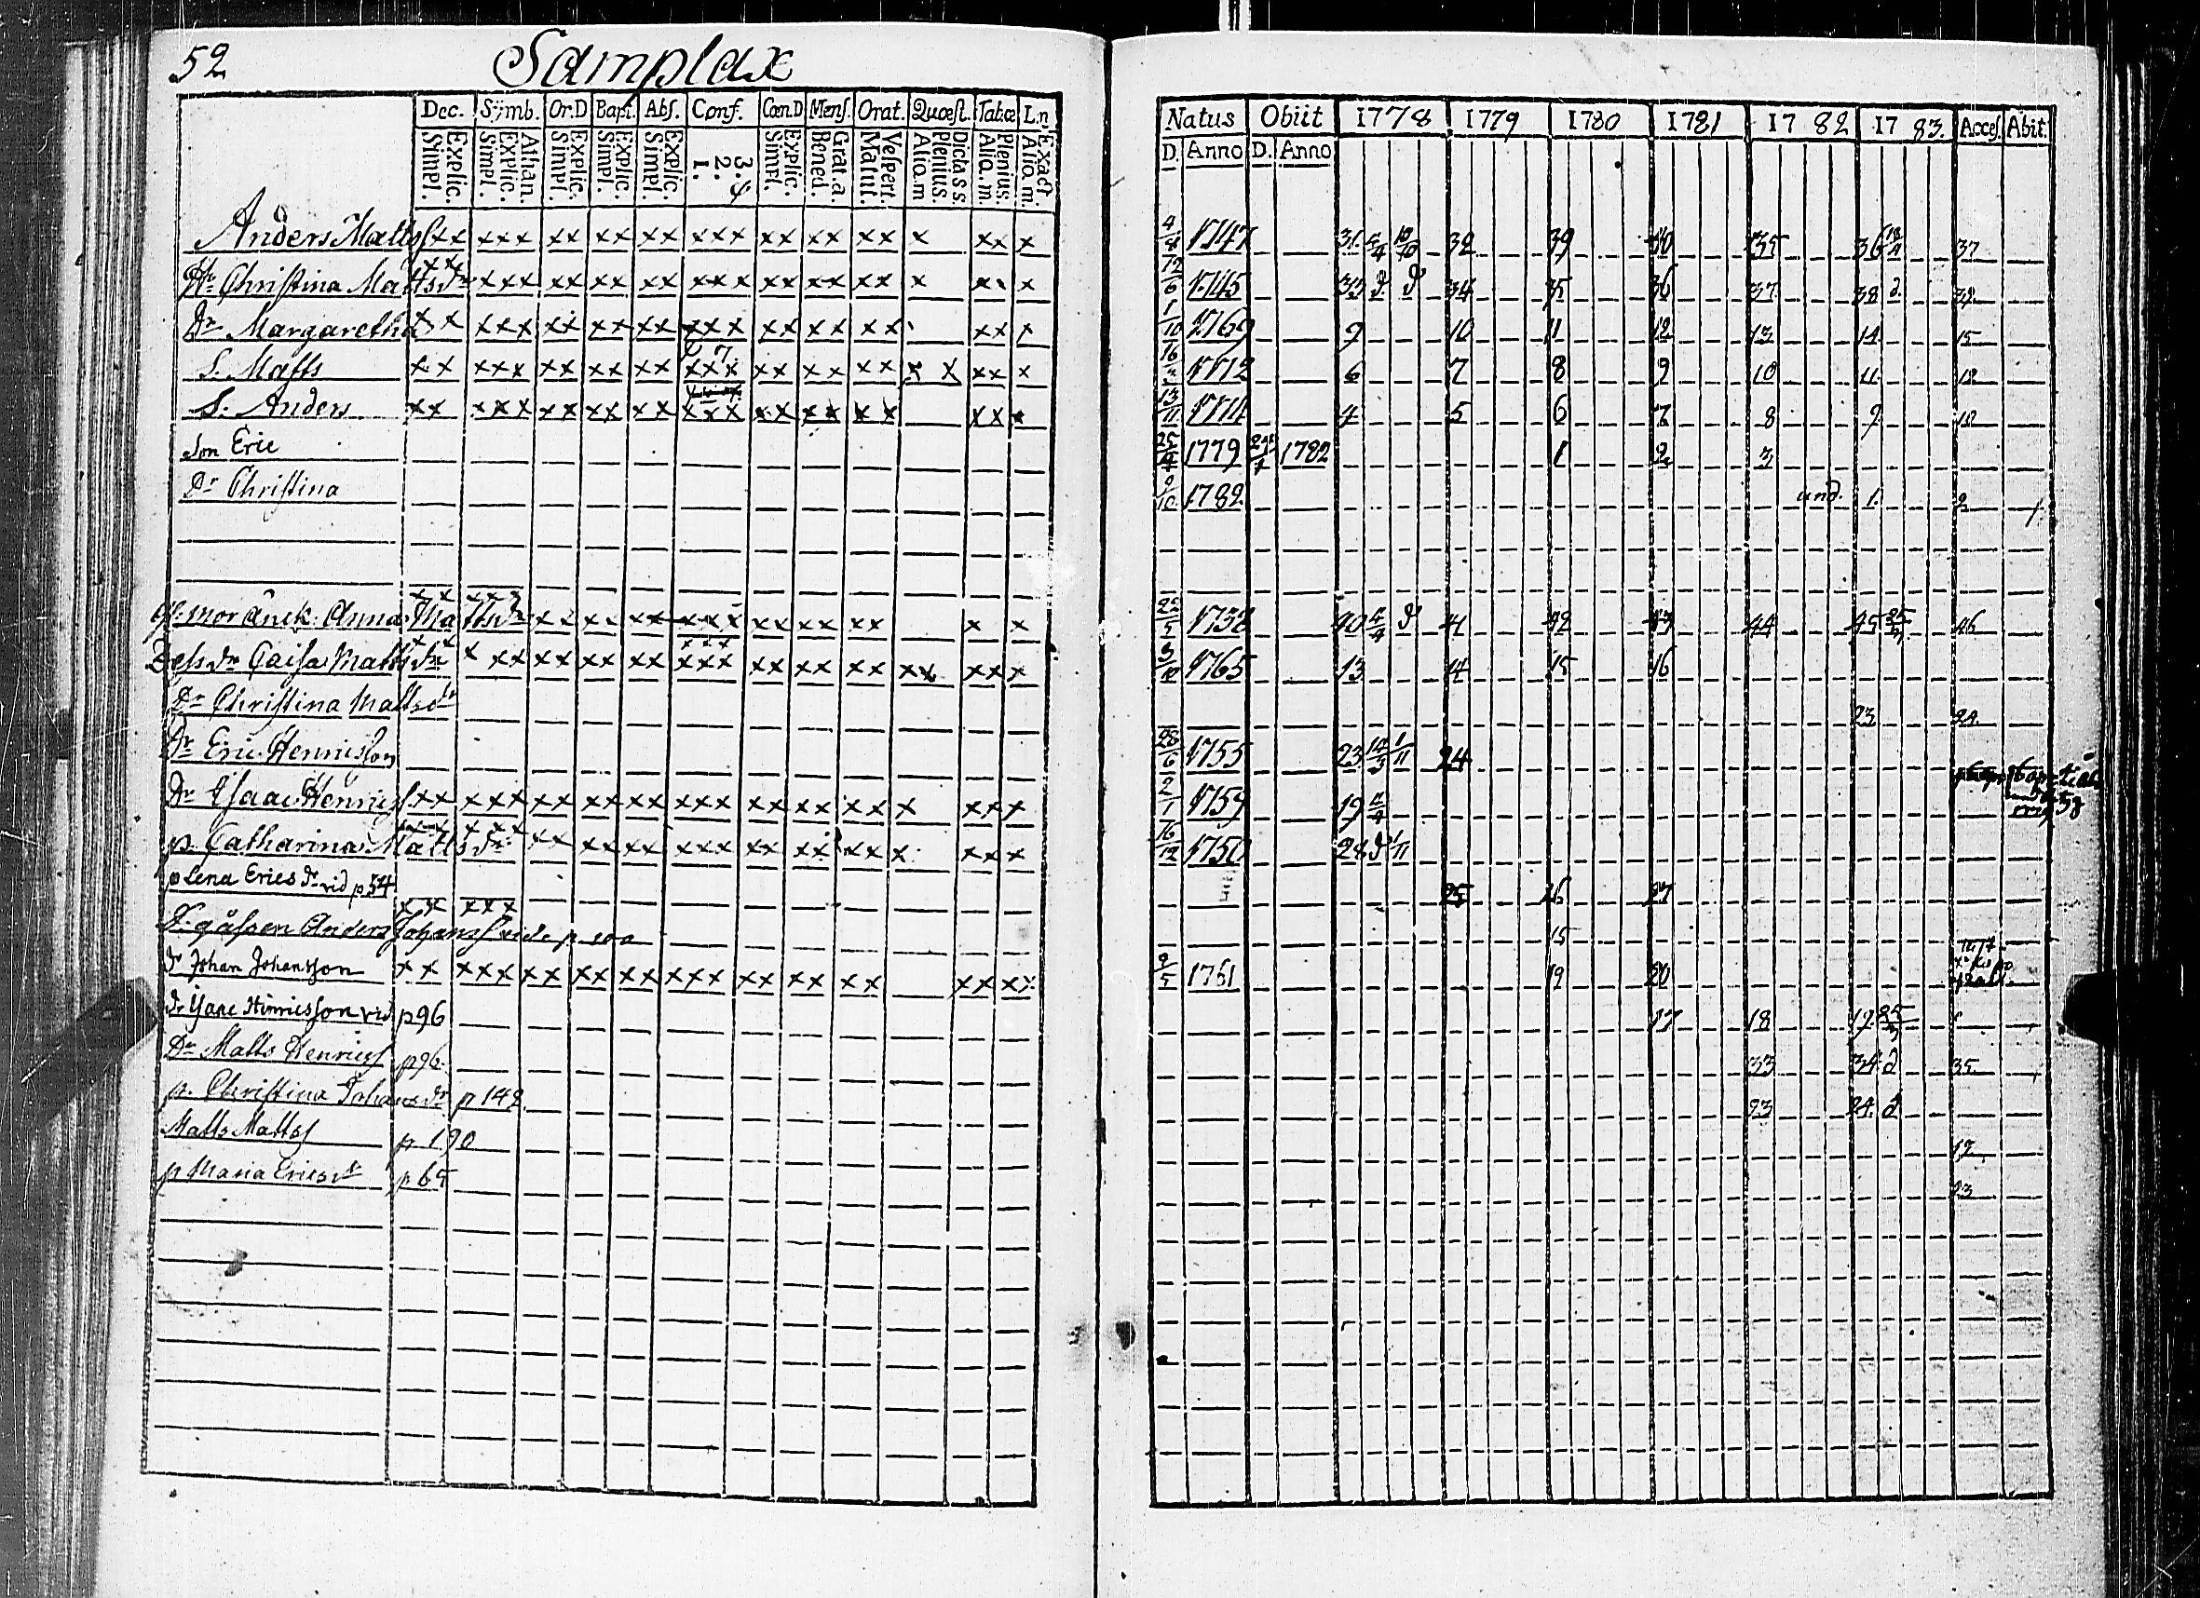 52 Samplax
Dec. Symb. Or.D Bapt. Abs. Conf. Cœn.D Mens. Orat. Quæst. Tab.œ L.n
Explic. Simpl. Athan. Explic. Simpl. Explic. Simpl. Explic Simpl. Explic Simpl. 3. 4 2. 1. Explic. Simpl. Grat.a. Bened. Vespert. Matut. Dicta s s. Plenius. Aliq.m Plenius. Aliq.m. Exact Aliq.m.
Anders Mattss xx xxx xx xx xx xxx xx xx xx x xx x
Hu Christina Mattsdr xx xxx xx xx xx xxx xx xx xx x xx x
Dr Margaretha xx xxx xx xx xx xxx xx xx xx xx x
S. Matts xx xxx xx xx xx xxx xx xx xx x x xx x
S. Anders xx xxx xx xx xx xxx xx xx xx xx x
Son Eric
Dr Christina
Anna Mattsdr xx xxx xx xx xx xxx xx xx xx x x
Dess dr Caisa Mattsdr xx xxx xx xx xx xxx xx xx xx xx xx x
Dr Christina Mattsdr
Dr Eric Hennisson
Dr Isaac Hennics xx xxx xx xx xx xxx xx xx xx x xx x
p. Catharina Mattsdr xx xxx xx xx xx xxx xx xx xx x xx x
p Lena Ericsdr vid p 54
Anders Johanss vide p 100
dr Johan Johansson xx xxx xx xx xx xxx xx xx xx xx xx
dr Isaac Hinricsson vid p96
Dr Matts Henricss p96.
p. Christina Johansdr p 142
Matts Mattss p 190
p Maria Ericsdr p 65
Natus Obiit 1778 1779 1780 1781 1782 1783. Acces. Abit.
D. Anno D. Anno
1747 31. 32 39 40 35 36 37
12/6 1745 33 34 35 36 37 38 39
1/10 1769 9 10 11 12 13 14 15
1772 6 7 8 9 10 11 12
13/11 1774 4 5 6 7 8 9 10
1779 1782 1 2 3
9/10 1782 und. 1. 2
1738 40 41 42 43 44 45 46
1765 13 14 15 16
23 24
28/6 1755 23 24
2/1 1759 19
16/12 1750 28
25 26 27
15
9/5 1761 19 20
17 18 19
33 34 35
23 24
17
23